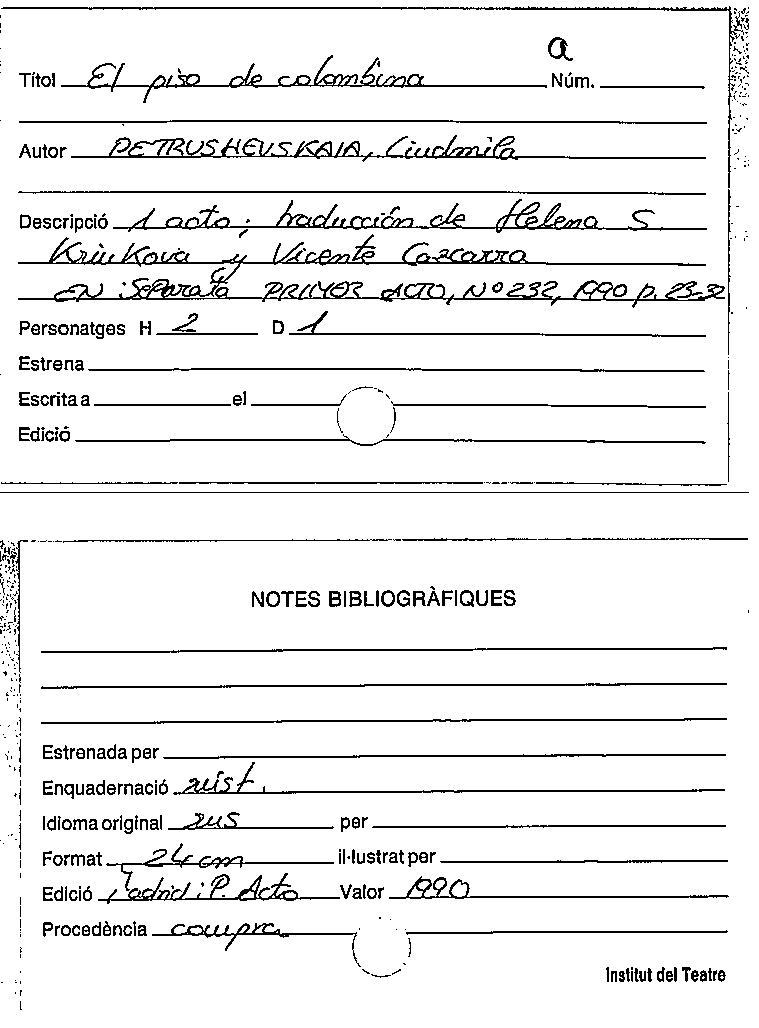 a
Títol El piso de colombina Núm.
Autor PETRUSHEVSKAIA, Liudmila
Descripció 1 acto; traducción de Helena S.
Kriukova y Vicente Cazcarra
EN: Separata PRIMER ACTO, Nº 232, 1990 p. 23-32
Personatges H 2 D 1
Estrena
Escrita a el
Edició
NOTES BIBLIOGRÀFIQUES
Estrenada per
Enquadernació rúst.
Idioma original rus per
Format 24 cm il·lustrat per
Edició Madrid: P. Acto Valor 1990
Procedència compra
Institut del Teatre